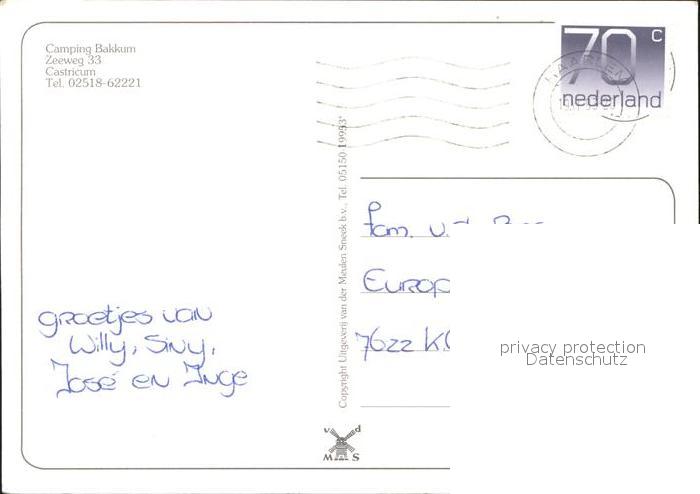 Camping Bakkum
Zeeweg 33
Castricum
Tel. 02518-62221
70 c
nederland
HAARLEM
Copyright Uitgeverij van der Meulen Sneek b.v., Tel. 05150 19953*
Fam. v.d.
Europ
7622 K
groetjes van
Willy, Siny,
José en Inge
v d
M S
privacy protection
Datenschutz